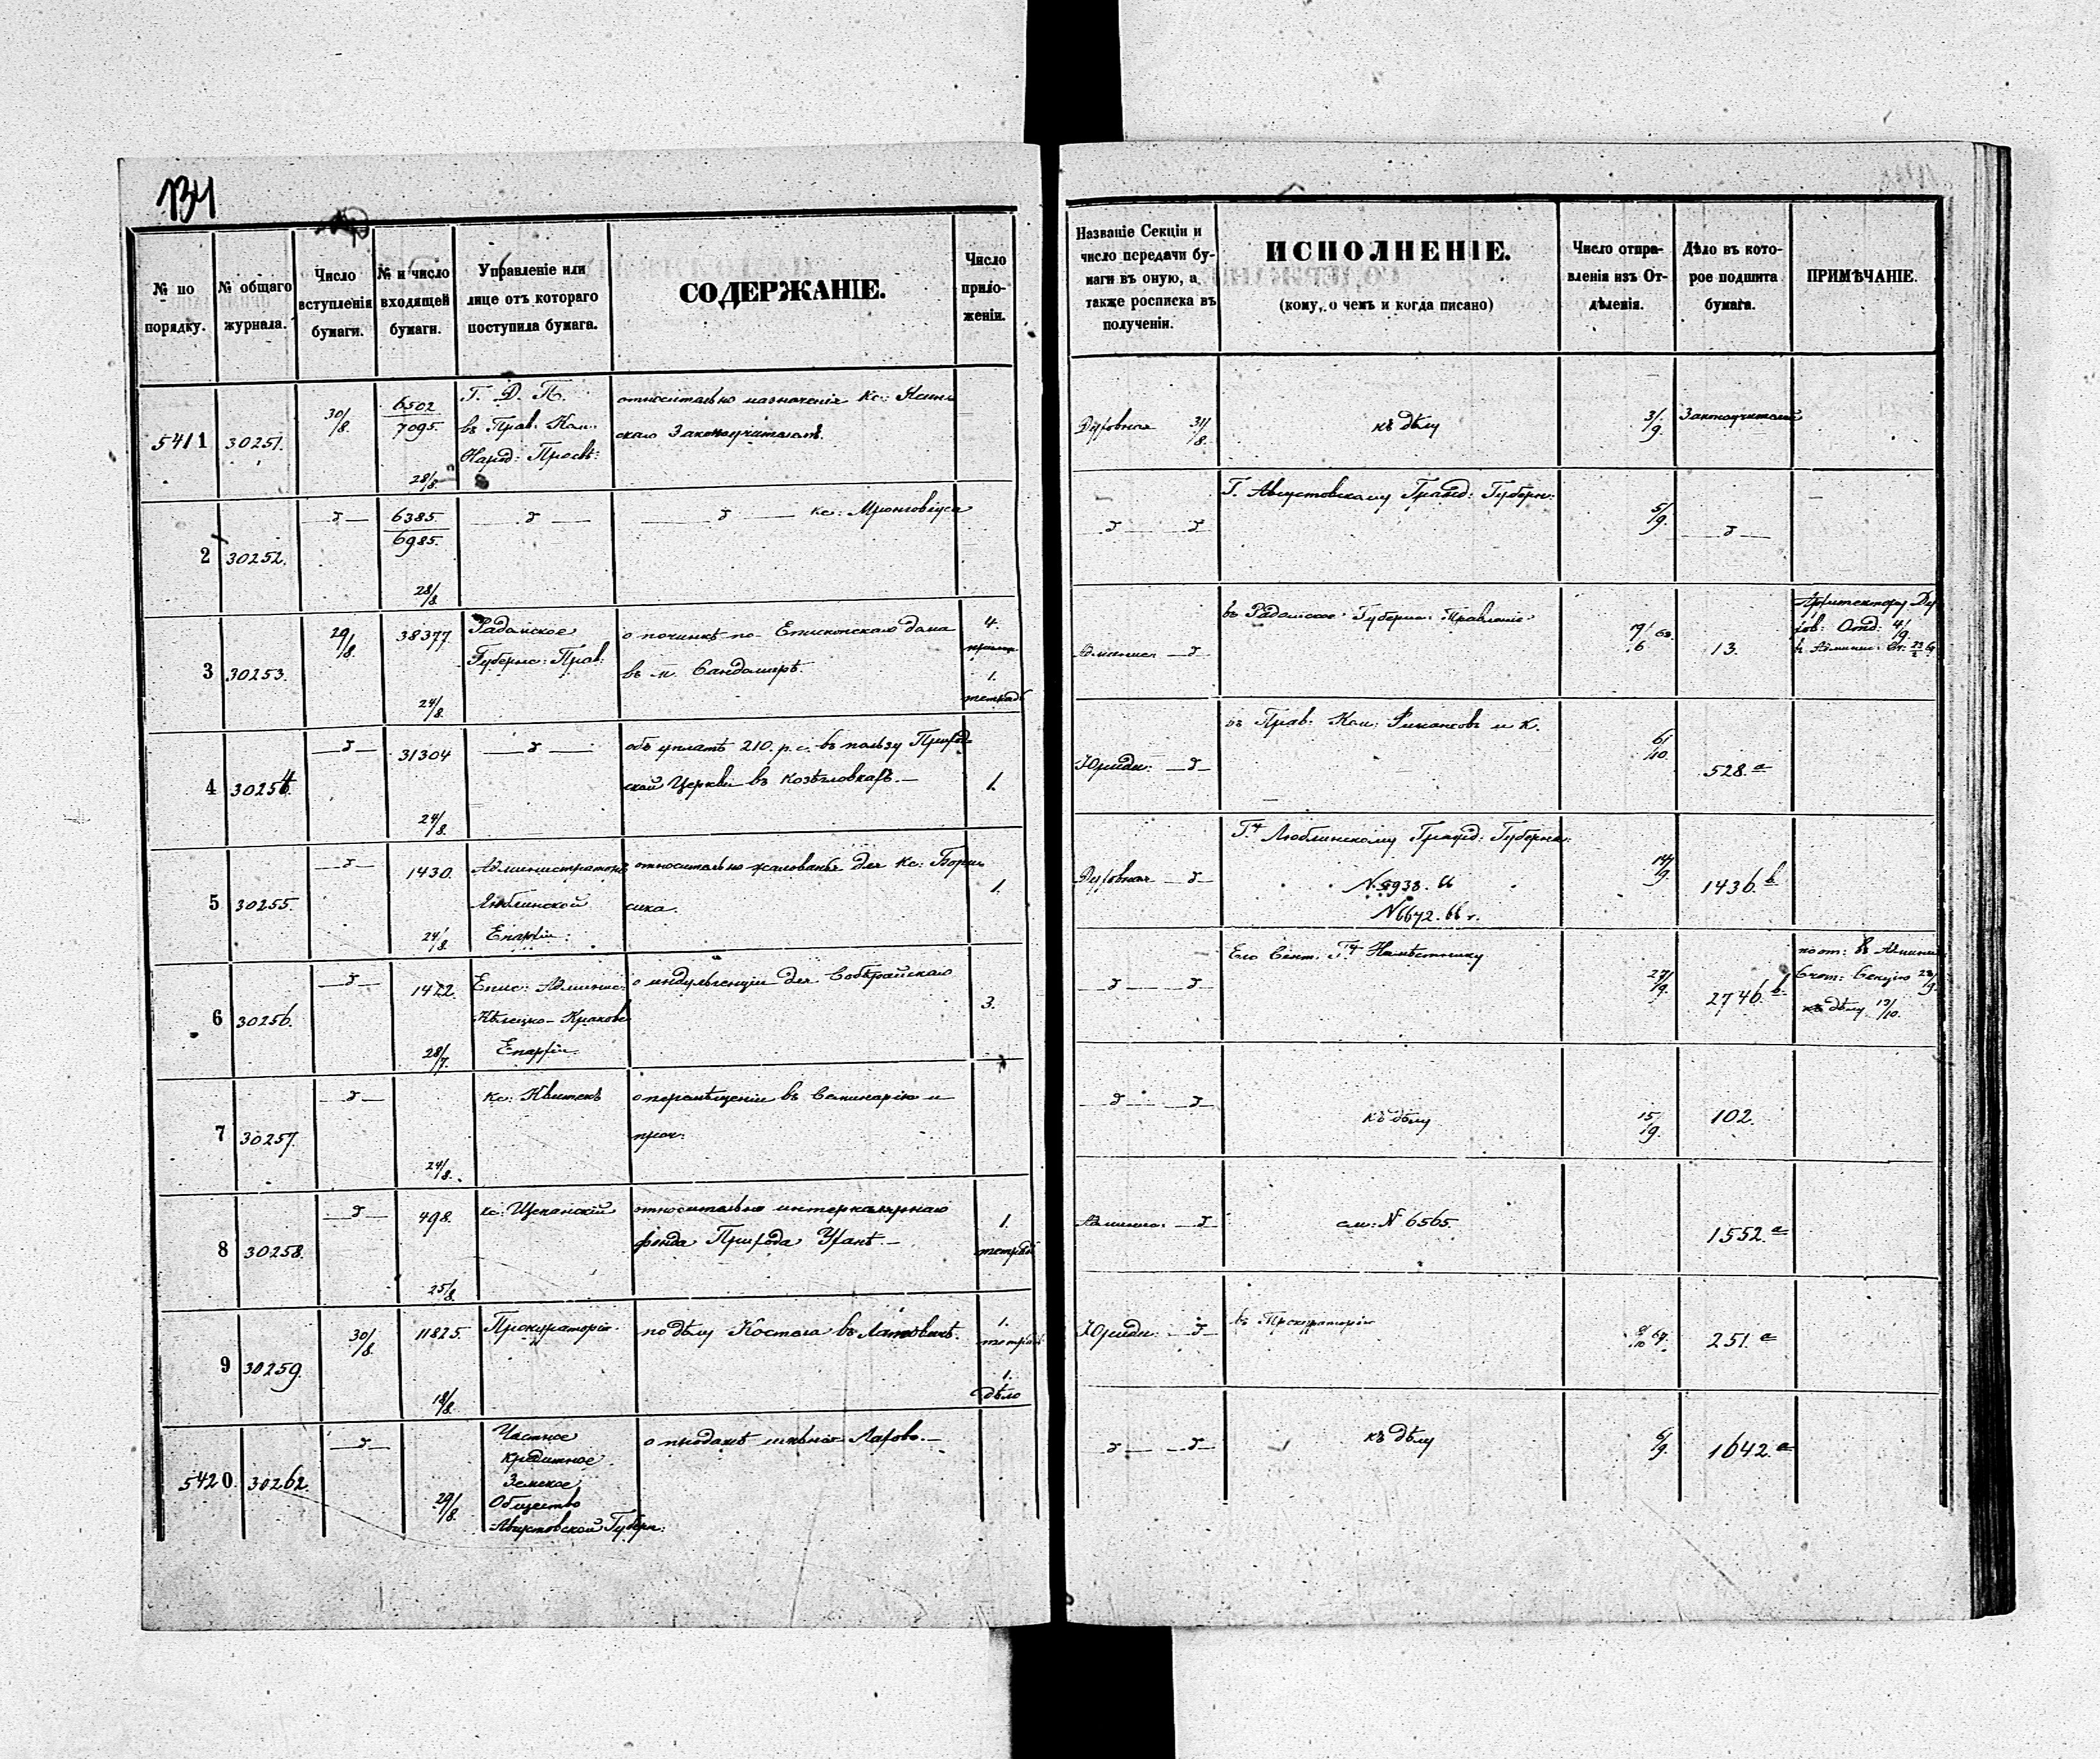 134
№ по порядку.
№ общаго журнала.
Число вступленія бумаги.
№ и число входящей бумаги.
Управленіе или лице отъ котораго поступила бумага.
СОДЕРЖАНІЕ.
Число приложеній.
Названіе Секціи и число передачи бумаги въ оную, а также росписка въ полученіи.
ИСПОЛНЕНІЕ.
(кому, о чемъ и когда писано)
Число отправленія изъ Отдѣленія.
Дѣло въ которое подшита бумага.
ПРИМѢЧАНІЕ.
5411 30251. 30/8. 6502 7095. 28/8.
Г. Д. П.
въ Прав. Ком.
Народ: Просвѣ:
относительно назначенія Кс:
скаго Законоучителемъ.
Духовная 31/8. къ дѣлу 3/9. Законоучителей
2 30252. 6385. 6985. 28/8.
Кс: Мронговіуса
Г. Августовскому Гражд: Губерн: 5/9.
3 30253. 29/8. 38377. 24/8.
Радомское
Губернс: Прав:
о починкѣ по-Епископскаго дома
въ м. Сандомирѣ.
4.
1.
тетрадь
въ Радомское Губерн. Правленіе
13.
4 30254. 31304 24/8.
объ уплатѣ 210. р. с. въ пользу Приход-
ской Церкви въ
1.
Юриди:
въ Прав: Ком: Финансовъ и К.
6/10. 528.a
5 30255. 1430. 24/8.
Администраторъ
Люблинской
Епархіи.
относительно жалованья для Кс: Бори-
сика.
1.
Духовная
Люблинскому Гражд: Губерна:
N. 5938. 66
N 6672. 66 г.
14/9. 1436.b
6 30256. 1422. 28/7.
Епис: Админис:
Кѣлецко-Краков:
Епархіи.
о индульгенціи для
3.
Его Сіят. Намѣстнику
27/9. 2746.b
къ дѣлу 12/10.
7 30257. 24/8.
Кс: Квитекъ
о перемѣщеніи въ Семинарію и
проч:
къ дѣлу 15/9. 102.
8 30258. 498. 25/8.
кс: Щепанскій
относительно интеркалярнаго
фонда Прихода
1.
тетрадь
см: N 6565. 1552.a
9 30259. 30/8. 11825. 18/8.
Прокураторія.
по дѣлу Костела въ
1.
тетрадь
1.
дѣло
Юриди:
въ Прокураторію
251.a
5420. 30262. 29/8.
Частное
кредитное
Земское
Общество
Августовской Губерн:
о продажѣ имѣнія
къ дѣлу 6/9. 1642.a